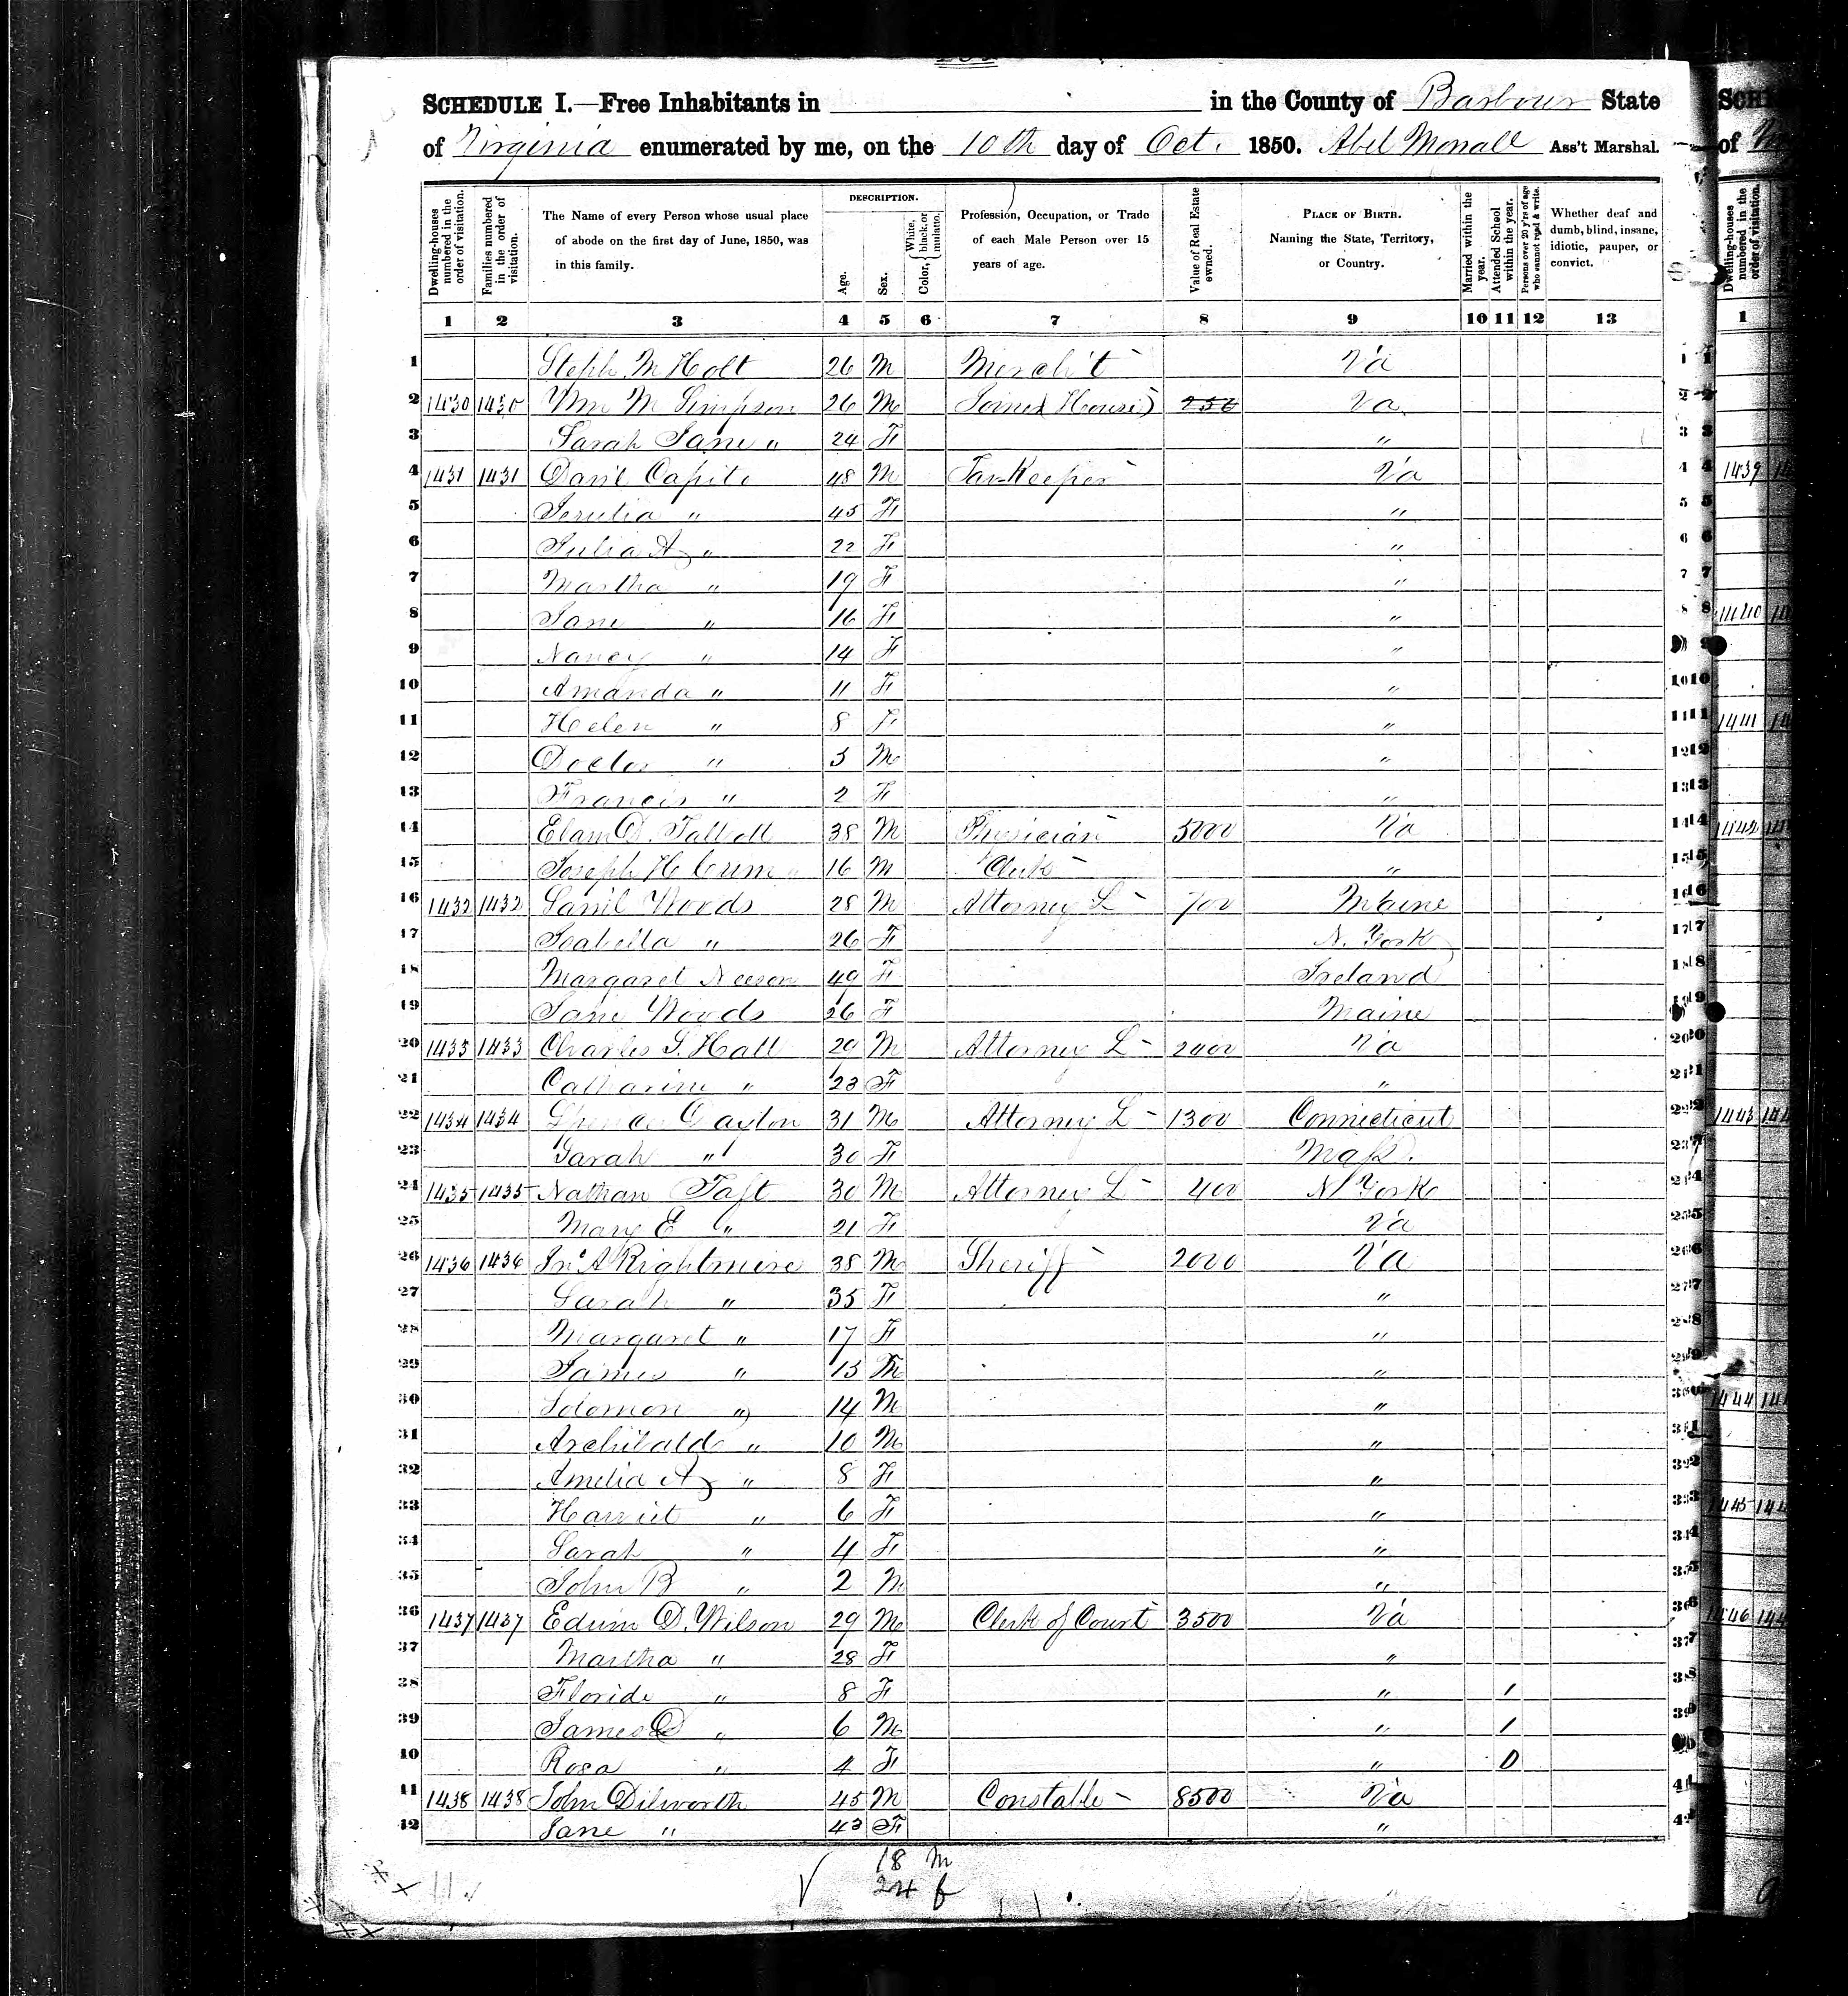 SCHEDULE I.—Free Inhabitants in in the County of Barbour State
of Virginia enumerated by me, on the 10th day of Oct. 1850. Abel Ass't Marshal.
Dwelling-houses numbered in the order of visitation.
Families numbered in the order of visitation.
The Name of every Person whose usual place of abode on the first day of June, 1850, was in this family.
DESCRIPTION.
Age.
Sex.
Color, White, black, or mulatto.
Profession, Occupation, or Trade of each Male Person over 15 years of age.
Value of Real Estate owned.
PLACE OF BIRTH. Naming the State, Territory, or Country.
Married within the year.
Attended School within the year.
Persons over 20 y'rs of age who cannot read & write.
Whether deaf and dumb, blind, insane, idiotic, pauper, or convict.
1 2 3 4 5 6 7 8 9 10 11 12 13
1 Steph. M Holt 26 M Merch't Va 1
2 1430 1430 Wm M Simpson 26 M Joiner (House) 250 Va 2
3 Sarah Jane " 24 F " 3
4 1431 1431 Dan'l Capito 48 M Tav-Keeper Va 4
5 " 45 F " 5
6 Julia A " 22 F " 6
7 Martha " 19 F " 7
8 Jane " 16 F " 8
9 Nancy " 14 F " 9
10 Amanda " 11 F " 10
11 Helen " 8 F " 11
12 Doctor " 5 M " 12
13 Francis " 2 F " 13
14 Elam D. Talbott 38 M Physician 5000 Va 14
15 Joseph H Crim 16 M Clerk " 15
16 1432 1432 Sam'l Woods 28 M Attorney L 700 Maine 16
17 Isabella " 26 F N. York 17
18 Margaret Neeson 49 F Ireland 18
19 Jane Woods 26 F Maine 19
20 1433 1433 Charles S. Hall 29 M Attorney L 2000 Va 20
21 Catharine " 23 F " 21
22 1434 1434 Spencer Dayton 31 M Attorney L 1300 Connecticut 22
23 Sarah " 30 F Mass. 23
24 1435 1435 Nathan Taft 30 M Attorney L 400 N York 24
25 Mary E " 21 F Va 25
26 1436 1436 Jno A Rightmire 38 M Sheriff 2000 Va 26
27 Sarah " 35 F " 27
28 Margaret " 17 F " 28
29 James " 15 M " 29
30 Solomon " 14 M " 30
31 Archibald " 10 M " 31
32 Amelia A " 8 F " 32
33 Harriet " 6 F " 33
34 Sarah " 4 F " 34
35 John B " 2 M " 35
36 1437 1437 Edwin D. Wilson 29 M Clerk of Court 3500 Va 36
37 Martha " 28 F " 37
38 Floride " 8 F " 1 38
39 James D " 6 M " 1 39
40 Rosa " 4 F " 0 40
41 1438 1438 John Dilworth 45 M Constable 8500 Va 41
42 Jane " 43 F " 42
18 m
24 f
SCH
of
Dwelling-houses numbered in the order of visitation.
1
1439
1440
1441
1442
1443
1444
1445
1446